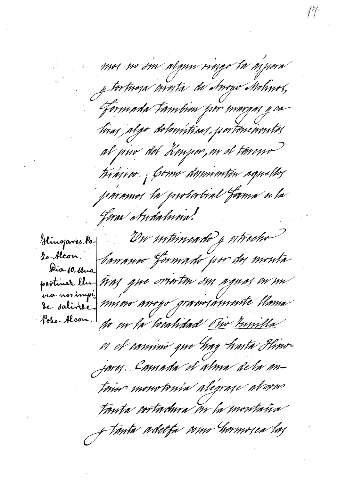 14
mos no sin algun riesgo la áspera
y tortuosa cuesta de Arroyo Molinos,
formada tambien por margas y ca-
lizas, algo dolomíticas, pertenecientes
al piso del Keuper, en el terreno
triásico. ¡Como desmienten aquellos
páramos la proverbial fama de la
feraz Andalucia!
Hinojares. Po-
zo-Alcon.
Dia 10. Una
pertinaz llu-
via nos impi-
de salir de
Pozo-Alcon.
Un intrincado y estrecho
barranco formado por dos monta-
ñas que vierten sus aguas en un
mísero arroyo graciosamente llama-
do en la localidad Rio Turrilla
es el camino que hay hasta Hino-
jares. Cansada el alma de la an-
terior monotonía alégrase al ver
tanta cortadura en la montaña
y tanta adelfa como hermosea las